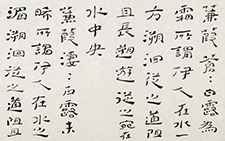 蒹葭蒼々白露為
霜所謂伊人在水一
方溯洄從之道阻
且長溯游從之宛在
水中央
蒹葭淒々白露未
晞所謂伊人在水之
湄溯洄從之道阻且